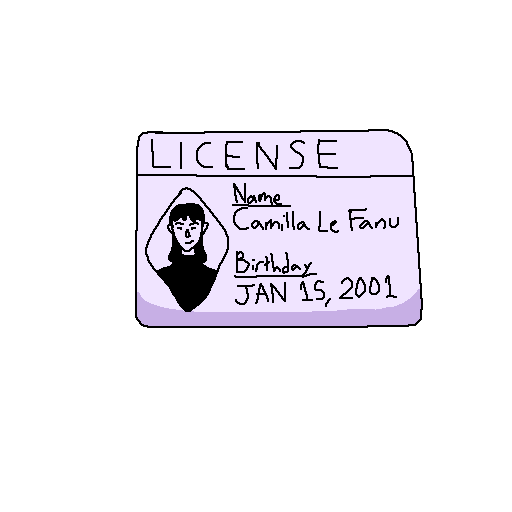 LICENSE
Name
Camilla Le Fanu
Birthday
JAN 15, 2001